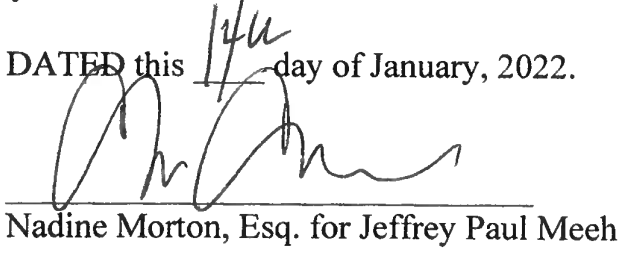 DATED this 14th day of January, 2022.
Nadine Morton, Esq. for Jeffrey Paul Meeh